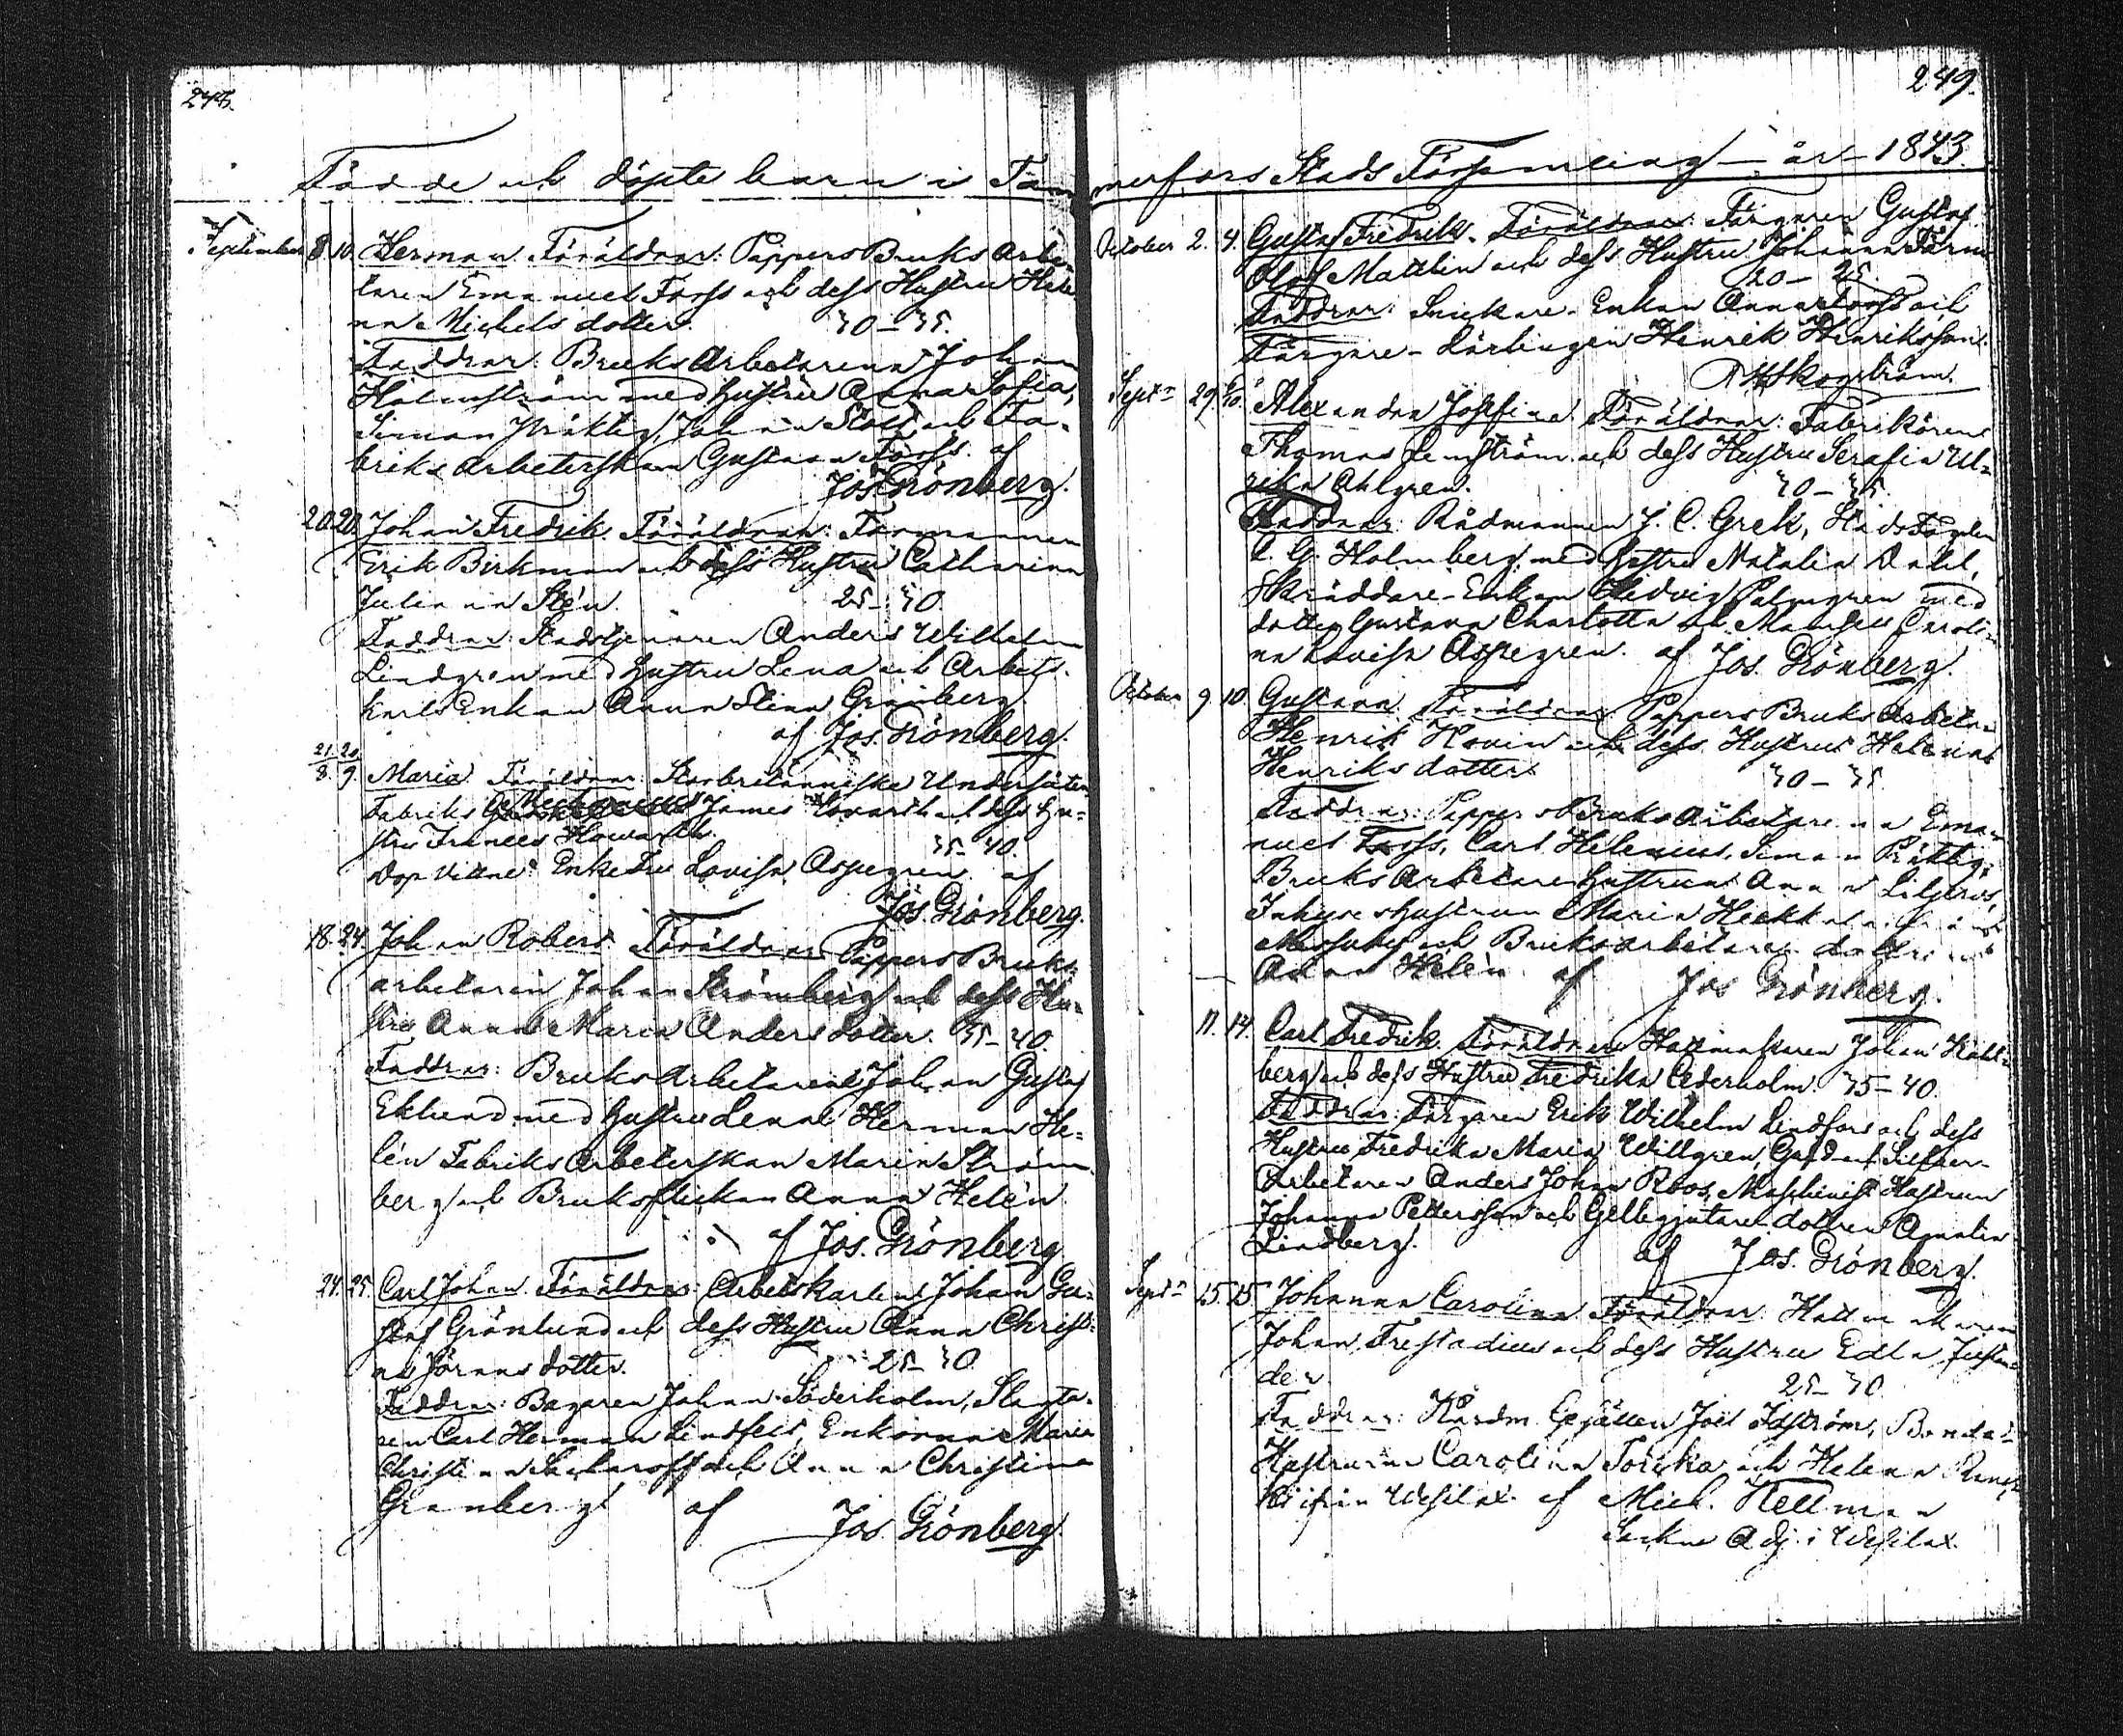 248.
Födde och döpte barn i Tam
September 8. 10. Herman. Föräldrar: Pappers Bruks Arbe-
taren Emanuel Forss och dess Hustru Hele-
na Michelsdotter. 30–35.
Faddrar: Bruks Arbetarena Johan
Holmström med Hustru Anna Sofia,
Simon Präktig, Johan och Fa-
briks Arbeterskan Gustava Forss. af
Jos. Grönberg.
20. 20. Johan Fredrik. Föräldrar: Formannen
Erik Birkman och dess Hustru Catharina
Juliana Stén. 25–30.
Faddrar: Stadstjenaren Anders Wilhelm
Lindgren med Hustru Lena och Arbets-
karls Enkan Anna Stina Grönberg.
af Jos. Grönberg.
21. 20.
8. 9. Maria. Föräldrar: Storbritanniske Undersåten
Fabriks Mechanicus James Howarth och dess Hu-
stru Frances Howarth. 35–40.
Dop Vittne: Enke Fru Lovisa Aspegren. af
Jos. Grönberg.
18. 24. Johan Robert. Föräldrar: Pappers Bruks
arbetaren Johan Strömberg och dess Hu-
stru Anna Maria Andersdotter. 35–40.
Faddrar: Bruks Arbetarene Johan Gustaf
Eklund med Hustru Lena, Herman He-
lén Fabriks Arbeterskan Maria Ström-
berg och Bruksflickan Anna Helén
af Jos. Grönberg.
24. 25. Carl Johan. Föräldrar: Arbetskarlen Johan Gu-
staf Grönlund och dess Hustru Anna Christi-
na Jöransdotter. 25–30
Faddrar: Bagaren Johan Söderholm, Slagta-
ren Carl Herman Lindfelt, Enkorna Maria
Christina och Anna Christina
Granberg af Jos. Grönberg.
249.
merfors Stads Församling – år – 1843.
October 2. 4. Gustaf Fredrik. Föräldrar: Färgaren Gustaf
Olof Mattlin och dess Hustru Johanna
20–25.
Faddrar: Snickare-Enkan Anna och
Färgare-Lärlingen Henrik Henriksson.
Skogström.
Septr 29. 6/10. Alexandra Josefina. Föräldrar: Fabrikören
Thomas Lenström och dess Hustru Serafia Ul-
rika Ahlgren. 30–35.
Faddrar: Rådmannen J. C. Grek, Stads Fogden
C. G. Holmberg med Hustru Natalia Dahl,
Skräddare-Enkan Hedvig Palmgren med
dotter Gustava Charlotta och Mamsell Caroli-
na Lovisa Aspegren. af Jos. Grönberg.
October 9. 10. Gustava. Föräldrar: Pappers Bruks Arbeta-
Henrik Hovin och dess Hustru Helena
Henriksdotter. 30–35.
Faddrar: Pappers Bruks Arbetarena Ema-
nuel Forss, Carl Helenius, Simon Präktig,
Bruks Arbetare Hustrun Anna
Inhyses Hustrun Maria
och Bruksarbetare dottren
Anna Helén af Jos Grönberg.
11. 14. Carl Fredrik. Föräldrar: Hattmakaren Johan
berg och dess Hustru Fredrika Cederholm. 35–40.
Faddrar: Färgaren Erik Wilhelm Lindfors och dess
Hustru Fredrika Maria Willgren, Guld och Silfver-
Arbetaren Anders Johan Roos, Maschinist Hustrun
Johanna Pettersson och Gelbgjutare dottren Amalia
Lindberg. af Jos. Grönberg.
Septr 15. 25 Johanna Carolina. Föräldrar: Hattmakaren
Johan Frestadius och dess Hustru Edla
25–30.
Faddrar: Gesällen Joel Idström, Bonde-
Hustrurna Carolina och Helena
ifrån Wesilax. af Mich. Hellman
Sockne Adj. i Wesilax.